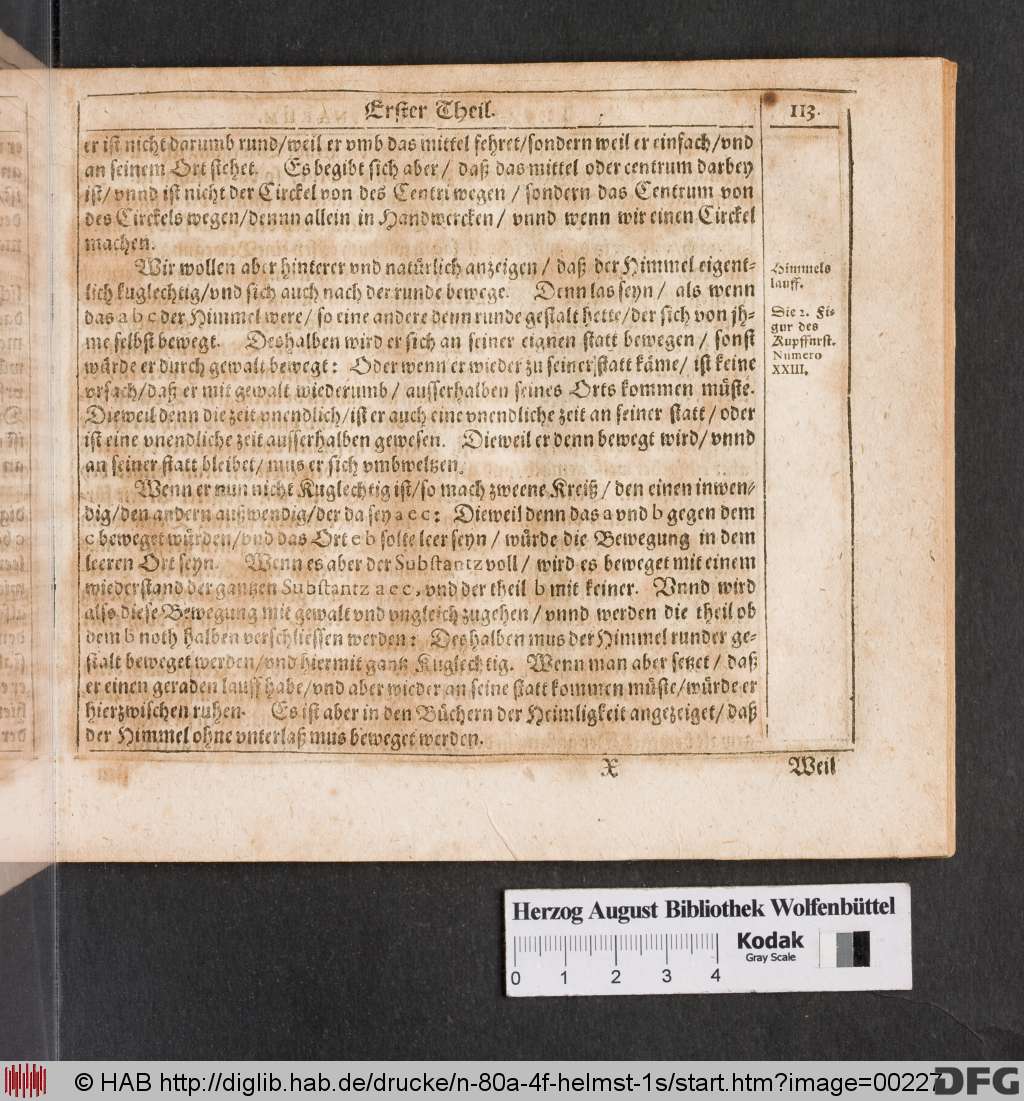 Erster Theil.
113.
er ist nicht darumb rund/weil er vmb das mittel kehret/sondern weil er einfach/vnd
an seinem Ort stehet. Es begibt sich aber/ daß das mittel oder centrum darbey
ist/vnnd ist nicht der Circkel von des Centri wegen / sondern das Centrum von
des Circkels wegen/dennn allein in Handwercken / vnnd wenn wir einen Circkel
machen.
Wir wollen aber hinterer vnd natürlich anzeigen / daß der Himmel eigent-
lich kuglechtig/vnd sich auch nach der runde bewege. Denn las seyn / als wenn
das a b c der Himmel were/ so eine andere denn runde gestalt hette/der sich von jh-
me selbst bewegt. Deshalben wird er sich an seiner eignen statt bewegen / sonst
würde er durch gewalt bewegt: Oder wenn er wieder zu seiner statt käme/ ist keine
vrsach/daß er mit gewalt wiederumb / ausserhalben seines Orts kommen müste.
Dieweil denn die zeit vnendlich/ist er auch eine vnendliche zeit an seiner statt / oder
ist eine vnendliche zeit ausserhalben gewesen. Dieweil er denn bewegt wird/ vnnd
an seiner statt bleibet/ mus er sich vmbweltzen.
Wenn er nun nicht Kuglechtig ist/so mach zweene Kreiß / den einen inwen-
dig/den andern außwendig/der da sey a e c: Dieweil denn das a vnd b gegen dem
c beweget würden/vnd das Ort e b solte leer seyn / würde die Bewegung in dem
leeren Ort seyn. Wenn es aber der Substantz voll / wird es beweget mit einem
wiederstand der gantzen Substantz a e c, vnd der theil b mit keiner. Vnnd wird
also diese Bewegung mit gewalt vnd vngleich zugehen / vnnd werden die theil ob
dem b noth halben verschliessen werden: Deshalben mus der Himmel runder ge-
stalt beweget werden/vnd hiermit gantz Kuglechtig. Wenn man aber setzet / daß
er einen geraden lauff habe/vnd aber wieder an seine statt kommen müste/würde er
hierzwischen ruhen. Es ist aber in den Büchern der Heimligkeit angezeiget/ daß
der Himmel ohne vnterlaß mus beweget werden.
Himmels
lauff.
Die 2. Fi-
gur des
Kupffürst.
Numero
XXIII.
X
Weil
Herzog August Bibliothek Wolfenbüttel
0 1 2 3 4
Kodak
Gray Scale
© HAB http://diglib.hab.de/drucke/n-80a-4f-helmst-1s/start.htm?image=00227
DFG